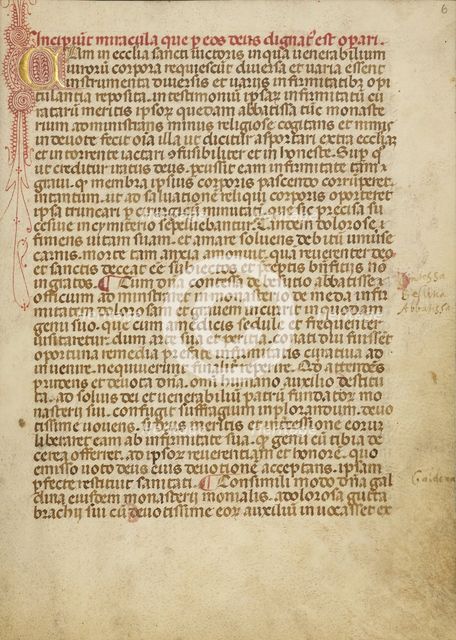 6
Incipiūt miracula que p eos deus dignat est opari.
Cum in ecclīa sancti uictoris in qua uenerabilium
uirorū corpora requiescūt diuersa et uaria essent
instrumenta diuersis et uariis infirmitatibꝫ opi
tulantia reposita. in testimoniū ipsaꝝ infirmitatū cu
ratarū meritis ipsoꝝ quedam abbatissa illiꝰ monaste
rium administrans minus religiose cogitans et minus
indeuote fecit oīa illa ut dicitur asportari extra ecclīaꝫ
et in torrente iactari ꝯfusibiliter et inhoneste. Sup quo
ut creditur iratus deus. pcussit eam infirmitate tam
graui. q membra ipsius corporis pascendo corrūperet.
intantum. ut ad saluatione reliqui corporis oporteret
ipsa truncari p cirugicū minutatim que sic precisa su
cessiue in cymiterio sepeliebantur. Tandem dolorose
finiens uitam suam. et amare soluens debitū uniuse
carnis. morte tam anxia pmonuit. qua reuerenter deo
et sanctis deceat ee subiectos et pceptis bn̄ficiis nō
ingratos. Cum dn̄a contessa de besutio abbatisse
officium administraret monasterio de meda infir
mitatē dolorosā et grauem incurrit in quodam
genu suo. que cum a medicis sedule et frequenter
uisitaretur. dum arte sua et peritia. conati diu fuissēt
oportuna remedia prefate infirmitatis curatiua ad
inuenire. nequiuerūt finalit reperire. Qd attendēs
prudens et deuota dn̄a. omi humano auxilio destitu
ta. ad solius dei et uenerabiliū patrū fundatoꝝ mo
nasterii sui. confugit suffragium inplorandum. deuo
tissime uouens. si deus meritis et intercessione eorum
liberaret eam ab infirmitate sua. q genu cū tibia de
cera offerret. ad ipsoꝝ reuerentiam et honorē. quo
emisso uoto deus eius deuotionē acceptans. ipsam
pfecte restituit sanitati. Consimili modo dn̄a gal
dina eiusdem monasterii monialis. a dolorosa gutta
brachii sui cū deuotissime eoꝝ auxiliū inuocasset ex
Contessa
Besutia
Abbatissa
Galdena